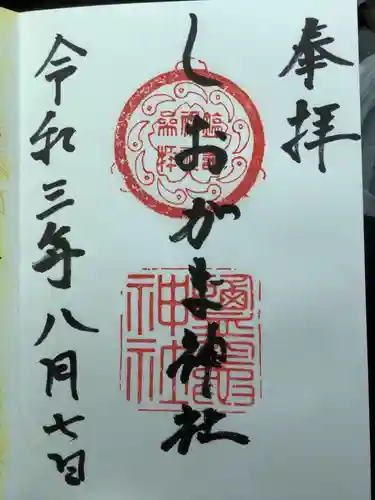 奉拝
しおがま神社
令和三年八月七日
鹽竈
神社